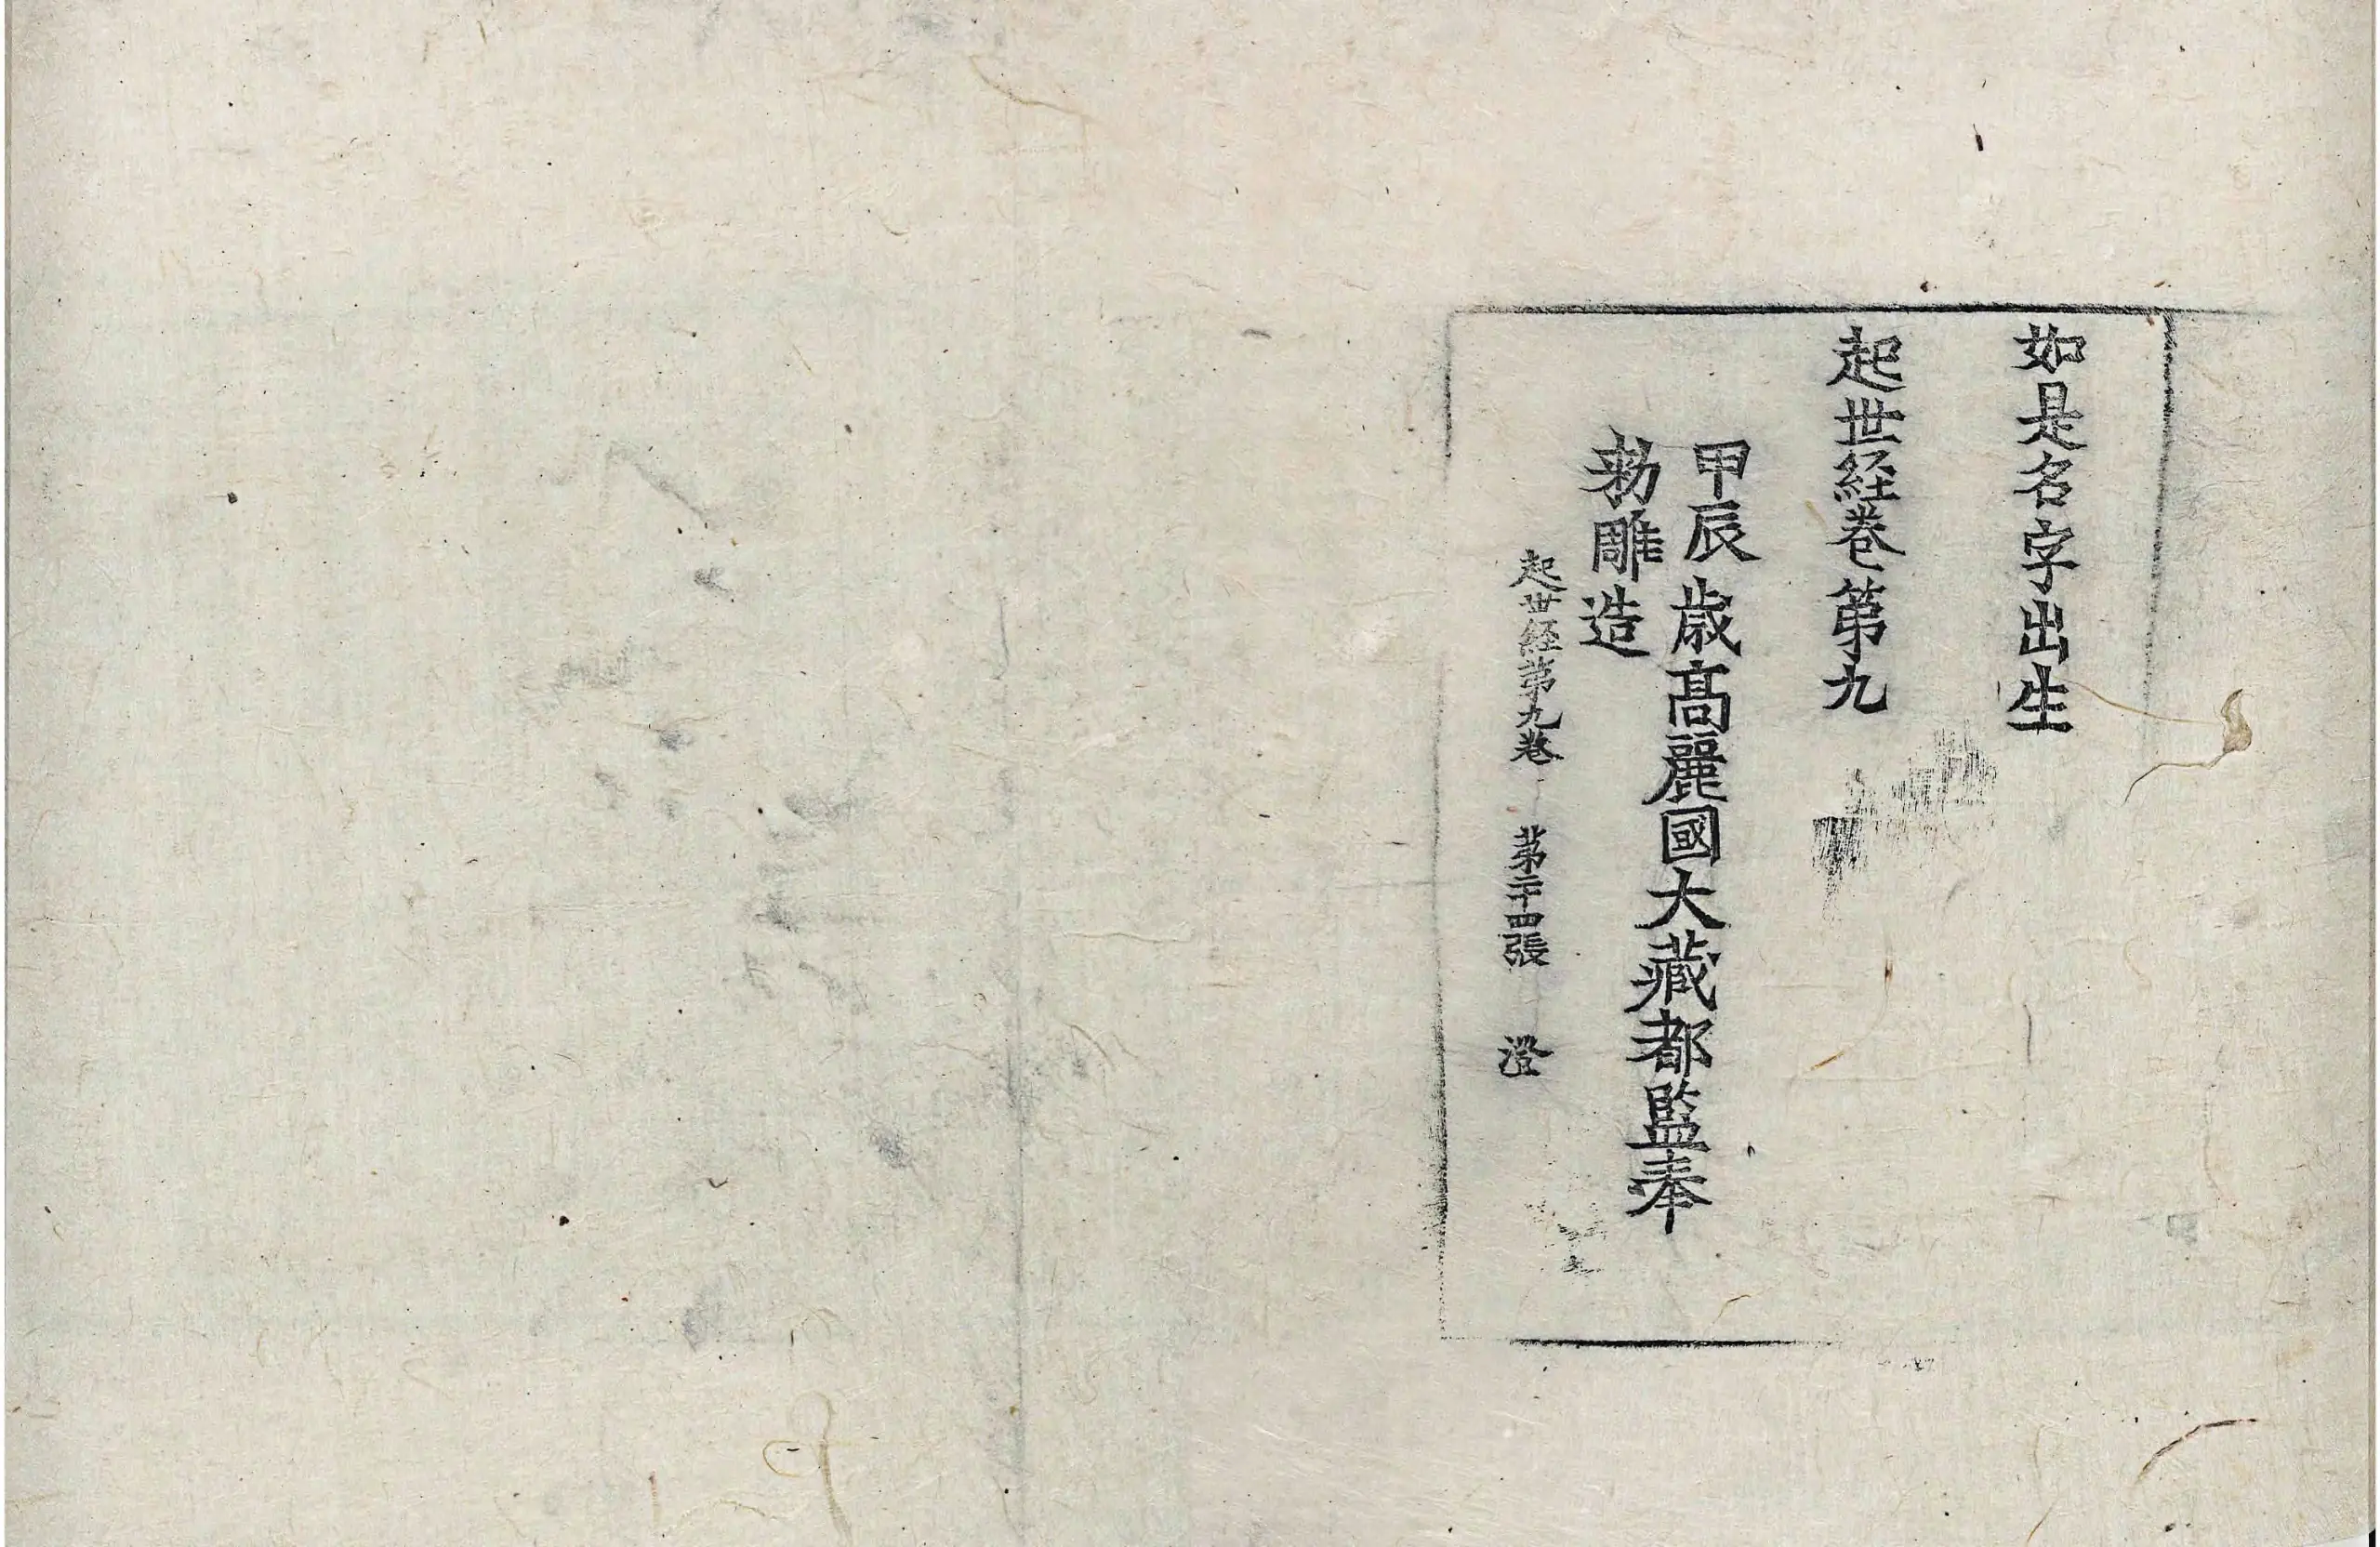 如是名字出生
起世経卷第九
甲辰歳高麗國大藏都監奉
勑雕造
起世経第九卷 第二十四張 澄